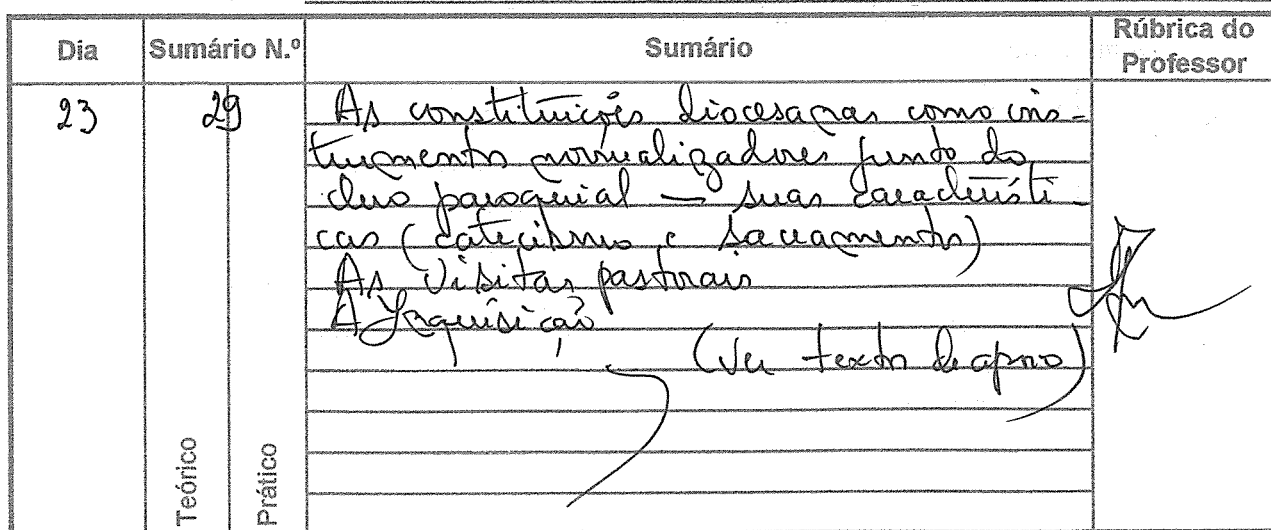 Dia Sumário N.º Sumário Rúbrica do Professor
23 29 As constituições diocesanas como ins-
trumentos normalizadores junto do
clero paroquial — suas característi-
cas (catecismo e sacramentos)
As Visitas pastorais
A Inquisição
(Ver textos de apoio)
Teórico
Prático